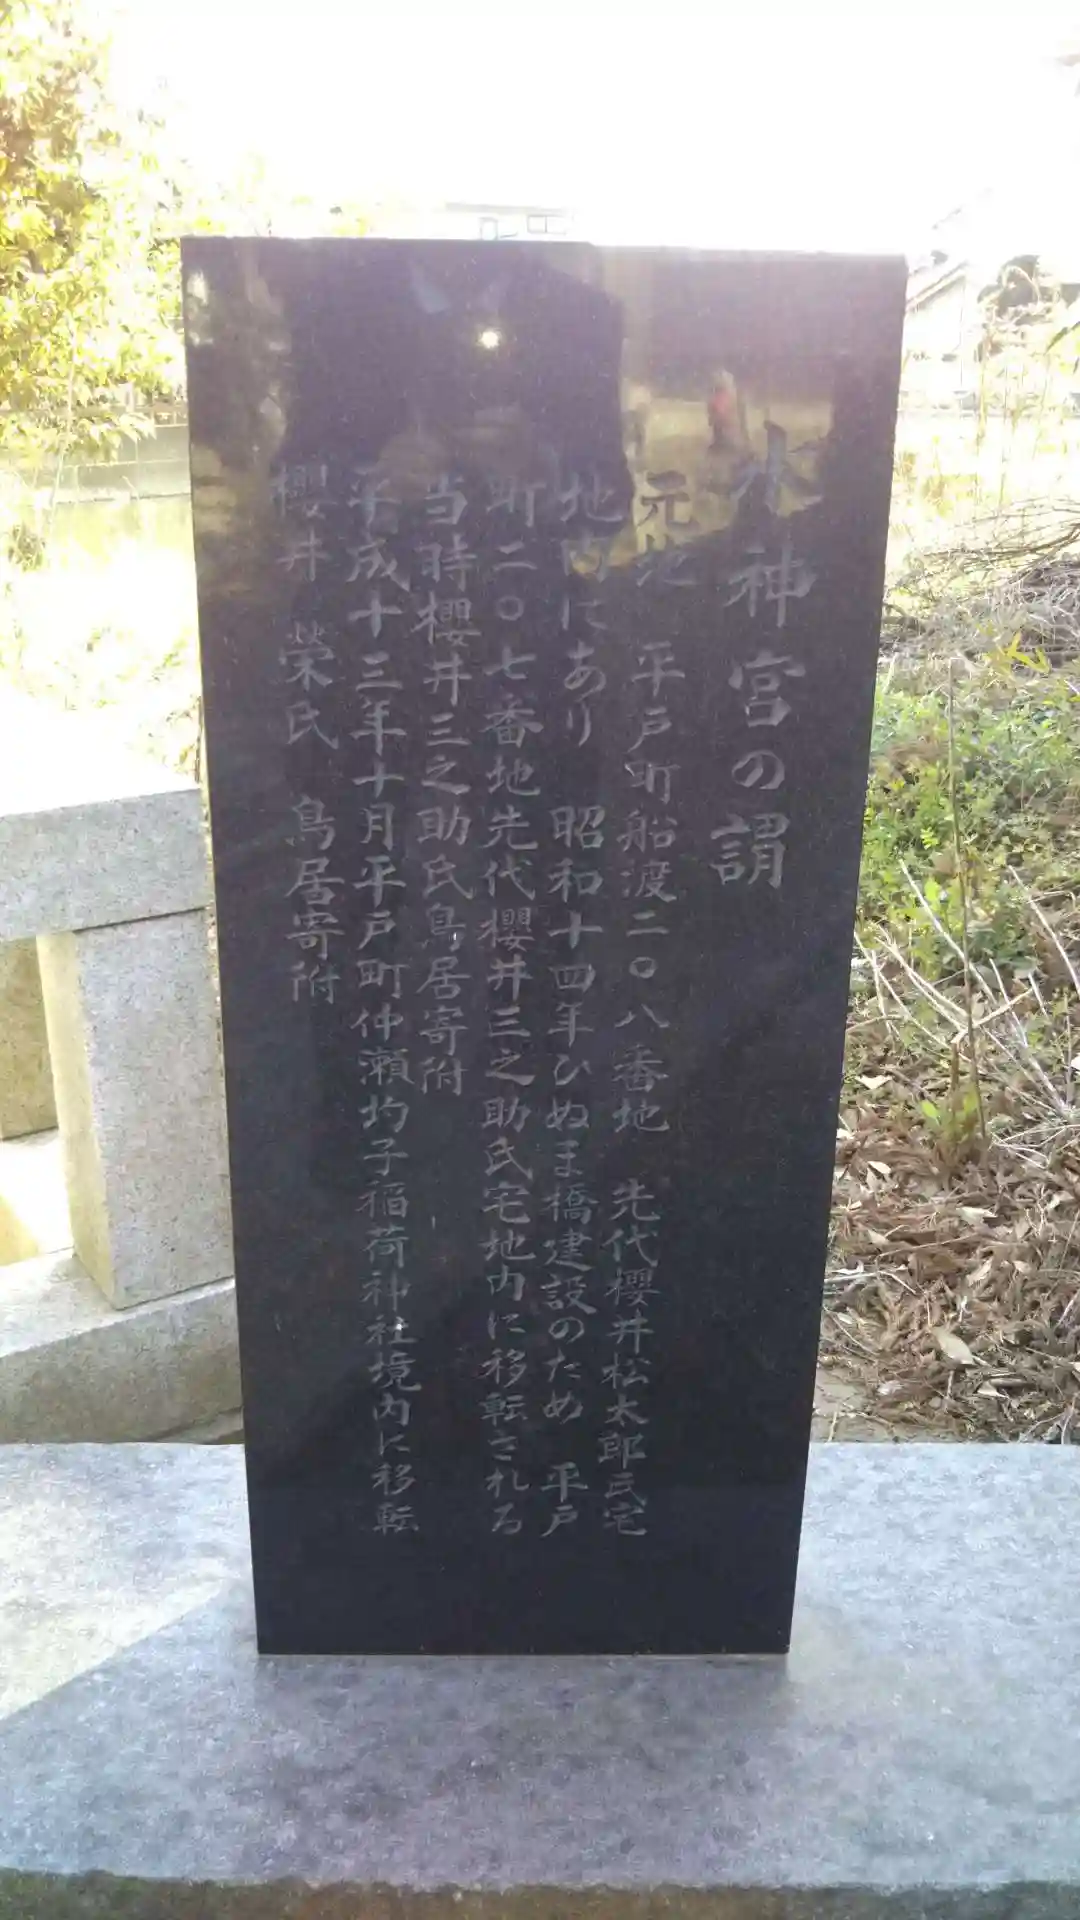 水神宮の謂
元地 平戸町船渡二〇八番地 先代櫻井松太郎氏宅
地内にあり 昭和十四年ひぬま橋建設のため 平戸
町二〇七番地先代櫻井三之助氏宅地内に移転される
当時櫻井三之助氏鳥居寄附
平成十三年十月平戸町仲瀬圴子稲荷神社境内に移転
櫻井 榮氏 鳥居寄附